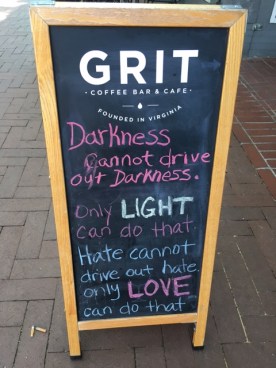 GRIT
· COFFEE BAR & CAFE ·
FOUNDED IN VIRGINIA
Darkness
Cannot drive
out Darkness.
Only LIGHT
can do that.
Hate cannot
drive out hate.
only LOVE
can do that